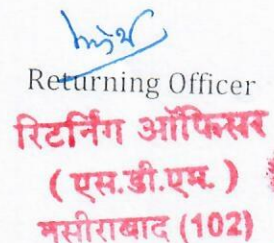 Returning Officer
रिटर्निंग ऑफिसर
( एस.डी.एम. )
नसीराबाद (102)